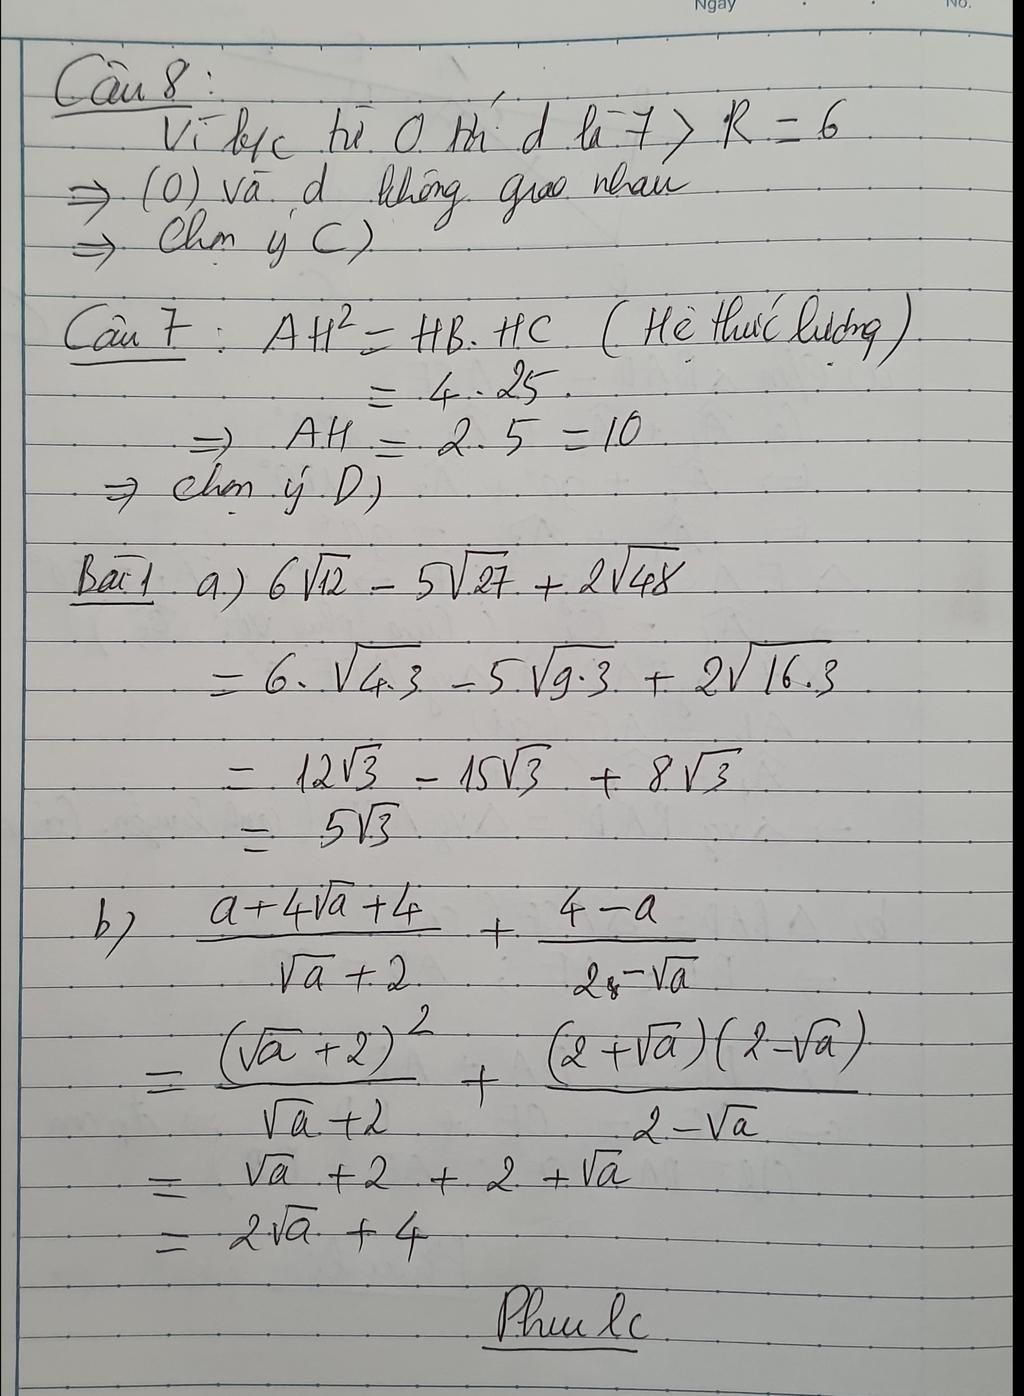 Ngày No.
Câu 8:
Vì k/c từ O tới d là 7 > R = 6
⇒ (O) và d không giao nhau
⇒ Chọn ý C)
Câu 7: AH² = HB. HC (Hệ thức lượng)
= 4.25.
⇒ AH = 2.5 = 10
⇒ chọn ý D)
Bài 1 a.) 6√12 - 5√27 + 2√48
= 6.√4.3 - 5√9.3 + 2√16.3
= 12√3 - 15√3 + 8√3
= 5√3
b) (a+4√a+4)/(√a+2) + (4-a)/(2-√a)
= (√a+2)²/(√a+2) + (2+√a)(2-√a)/(2-√a)
= √a + 2 + 2 + √a
= 2√a + 4